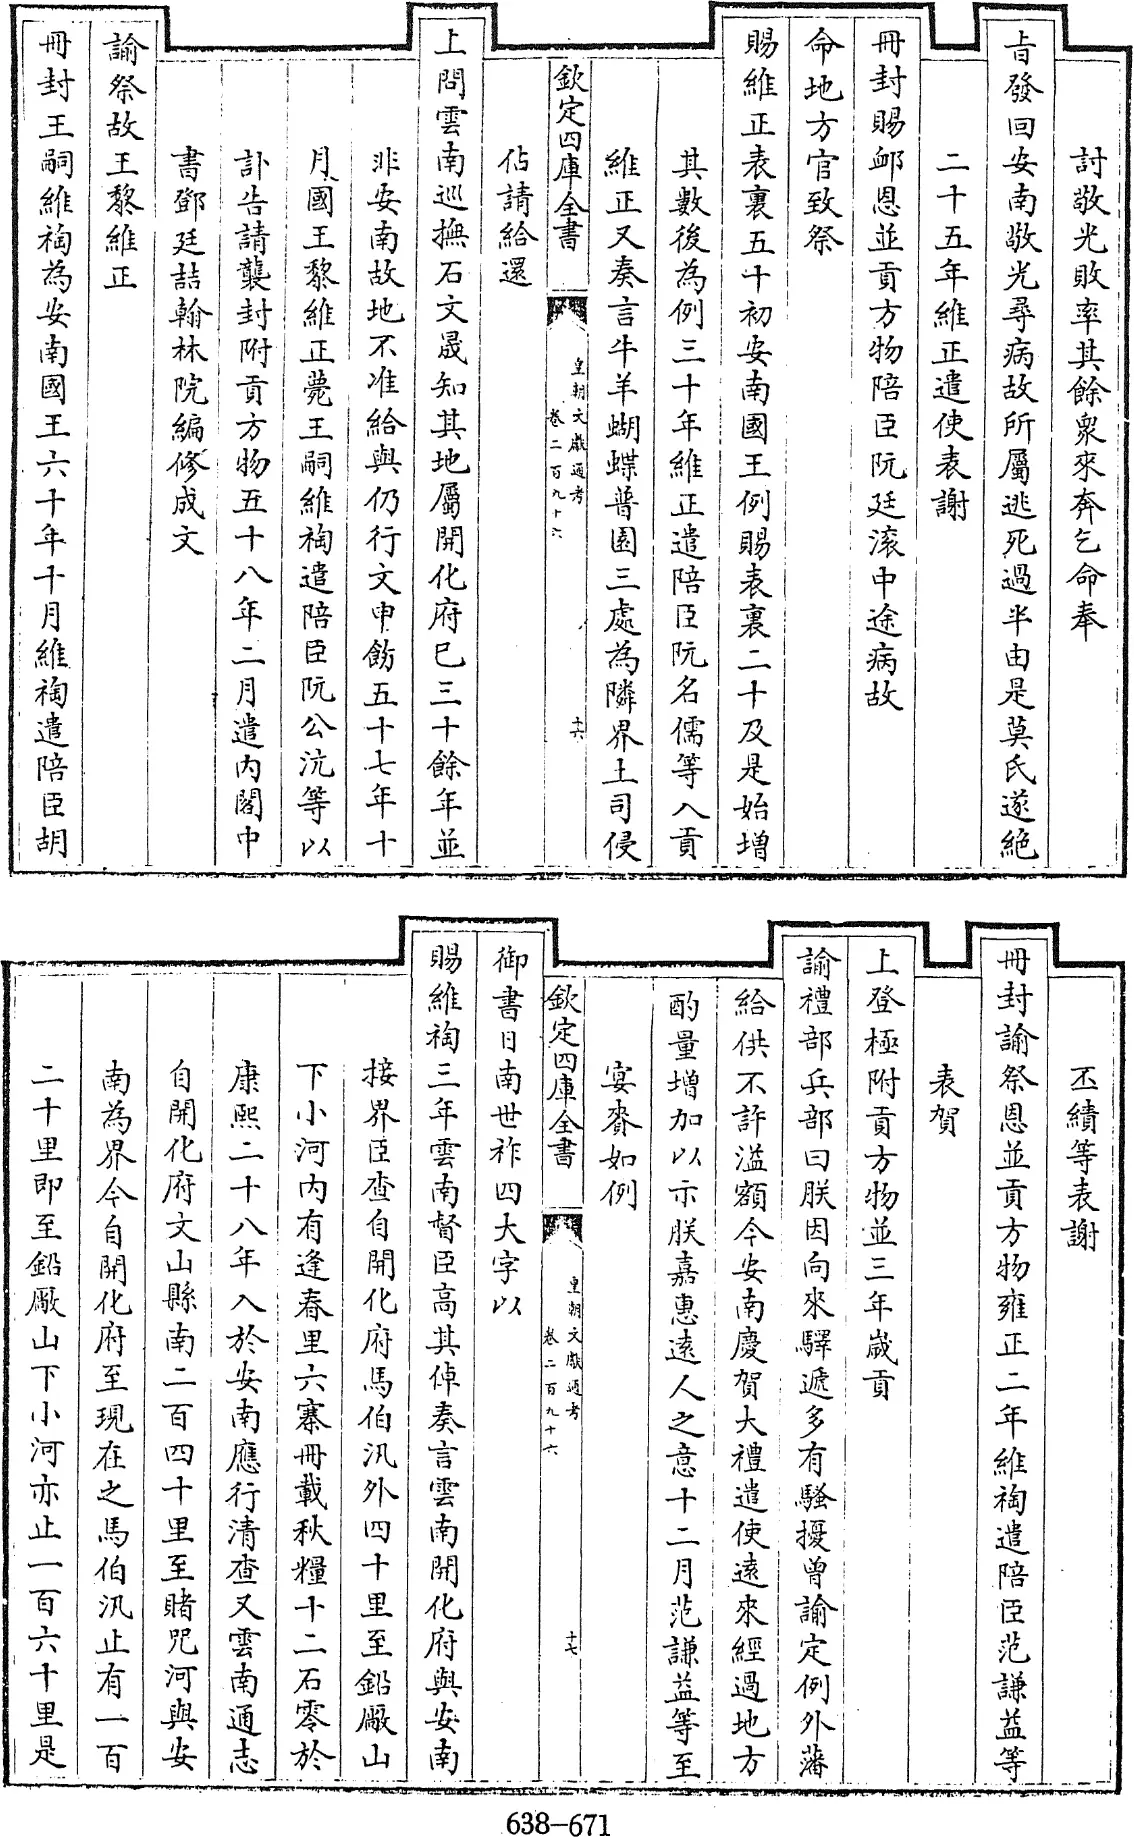 討敬光敗率其餘衆來奔乞命奉
㫖發回安南敬光尋病故所屬逃死過半由是莫氏遂絶
二十五年維正遣使表謝
冊封賜卹恩並貢方物陪臣阮廷滚中途病故
命地方官致祭
賜維正表裏五十初安南國王例賜表裏二十及是始增
其數後為例三十年維正遣陪臣阮名儒等入貢
維正又奏言牛羊蝴蝶普園三處為隣界土司侵
欽定四庫全書
皇朝文獻通考
卷二百九十六
十六
佔請給還
上問雲南巡撫石文晟知其地屬開化府已三十餘年並
非安南故地不准給與仍行文申飭五十七年十
月國王黎維正薨王嗣維裪遣陪臣阮公沆等以
訃告請襲封附貢方物五十八年二月遣内閣中
書鄧廷喆翰林院編修成文
諭祭故王黎維正
冊封王嗣維裪為安南國王六十年十月維裪遣陪臣胡
丕績等表謝
冊封諭祭恩並貢方物雍正二年維裪遣陪臣范謙益等
表賀
上登極附貢方物並三年歲貢
諭禮部兵部曰朕因向來驛遞多有騷擾曾諭定例外藩
給供不許溢額今安南慶賀大禮遣使遠來經過地方
酌量增加以示朕嘉惠遠人之意十二月范謙益等至
宴賚如例
欽定四庫全書
皇朝文獻通考
卷二百九十六
十七
御書日南世祚四大字以
賜維裪三年雲南督臣高其倬奏言雲南開化府與安南
接界臣查自開化府馬伯汛外四十里至鉛厰山
下小河内有逢春里六寨冊載秋糧十二石零於
康熙二十八年入於安南應行清查又雲南通志
自開化府文山縣南二百四十里至賭咒河與安
南為界今自開化府至現在之馬伯汛止有一百
二十里即至鉛厰山下小河亦止一百六十里是
638–671